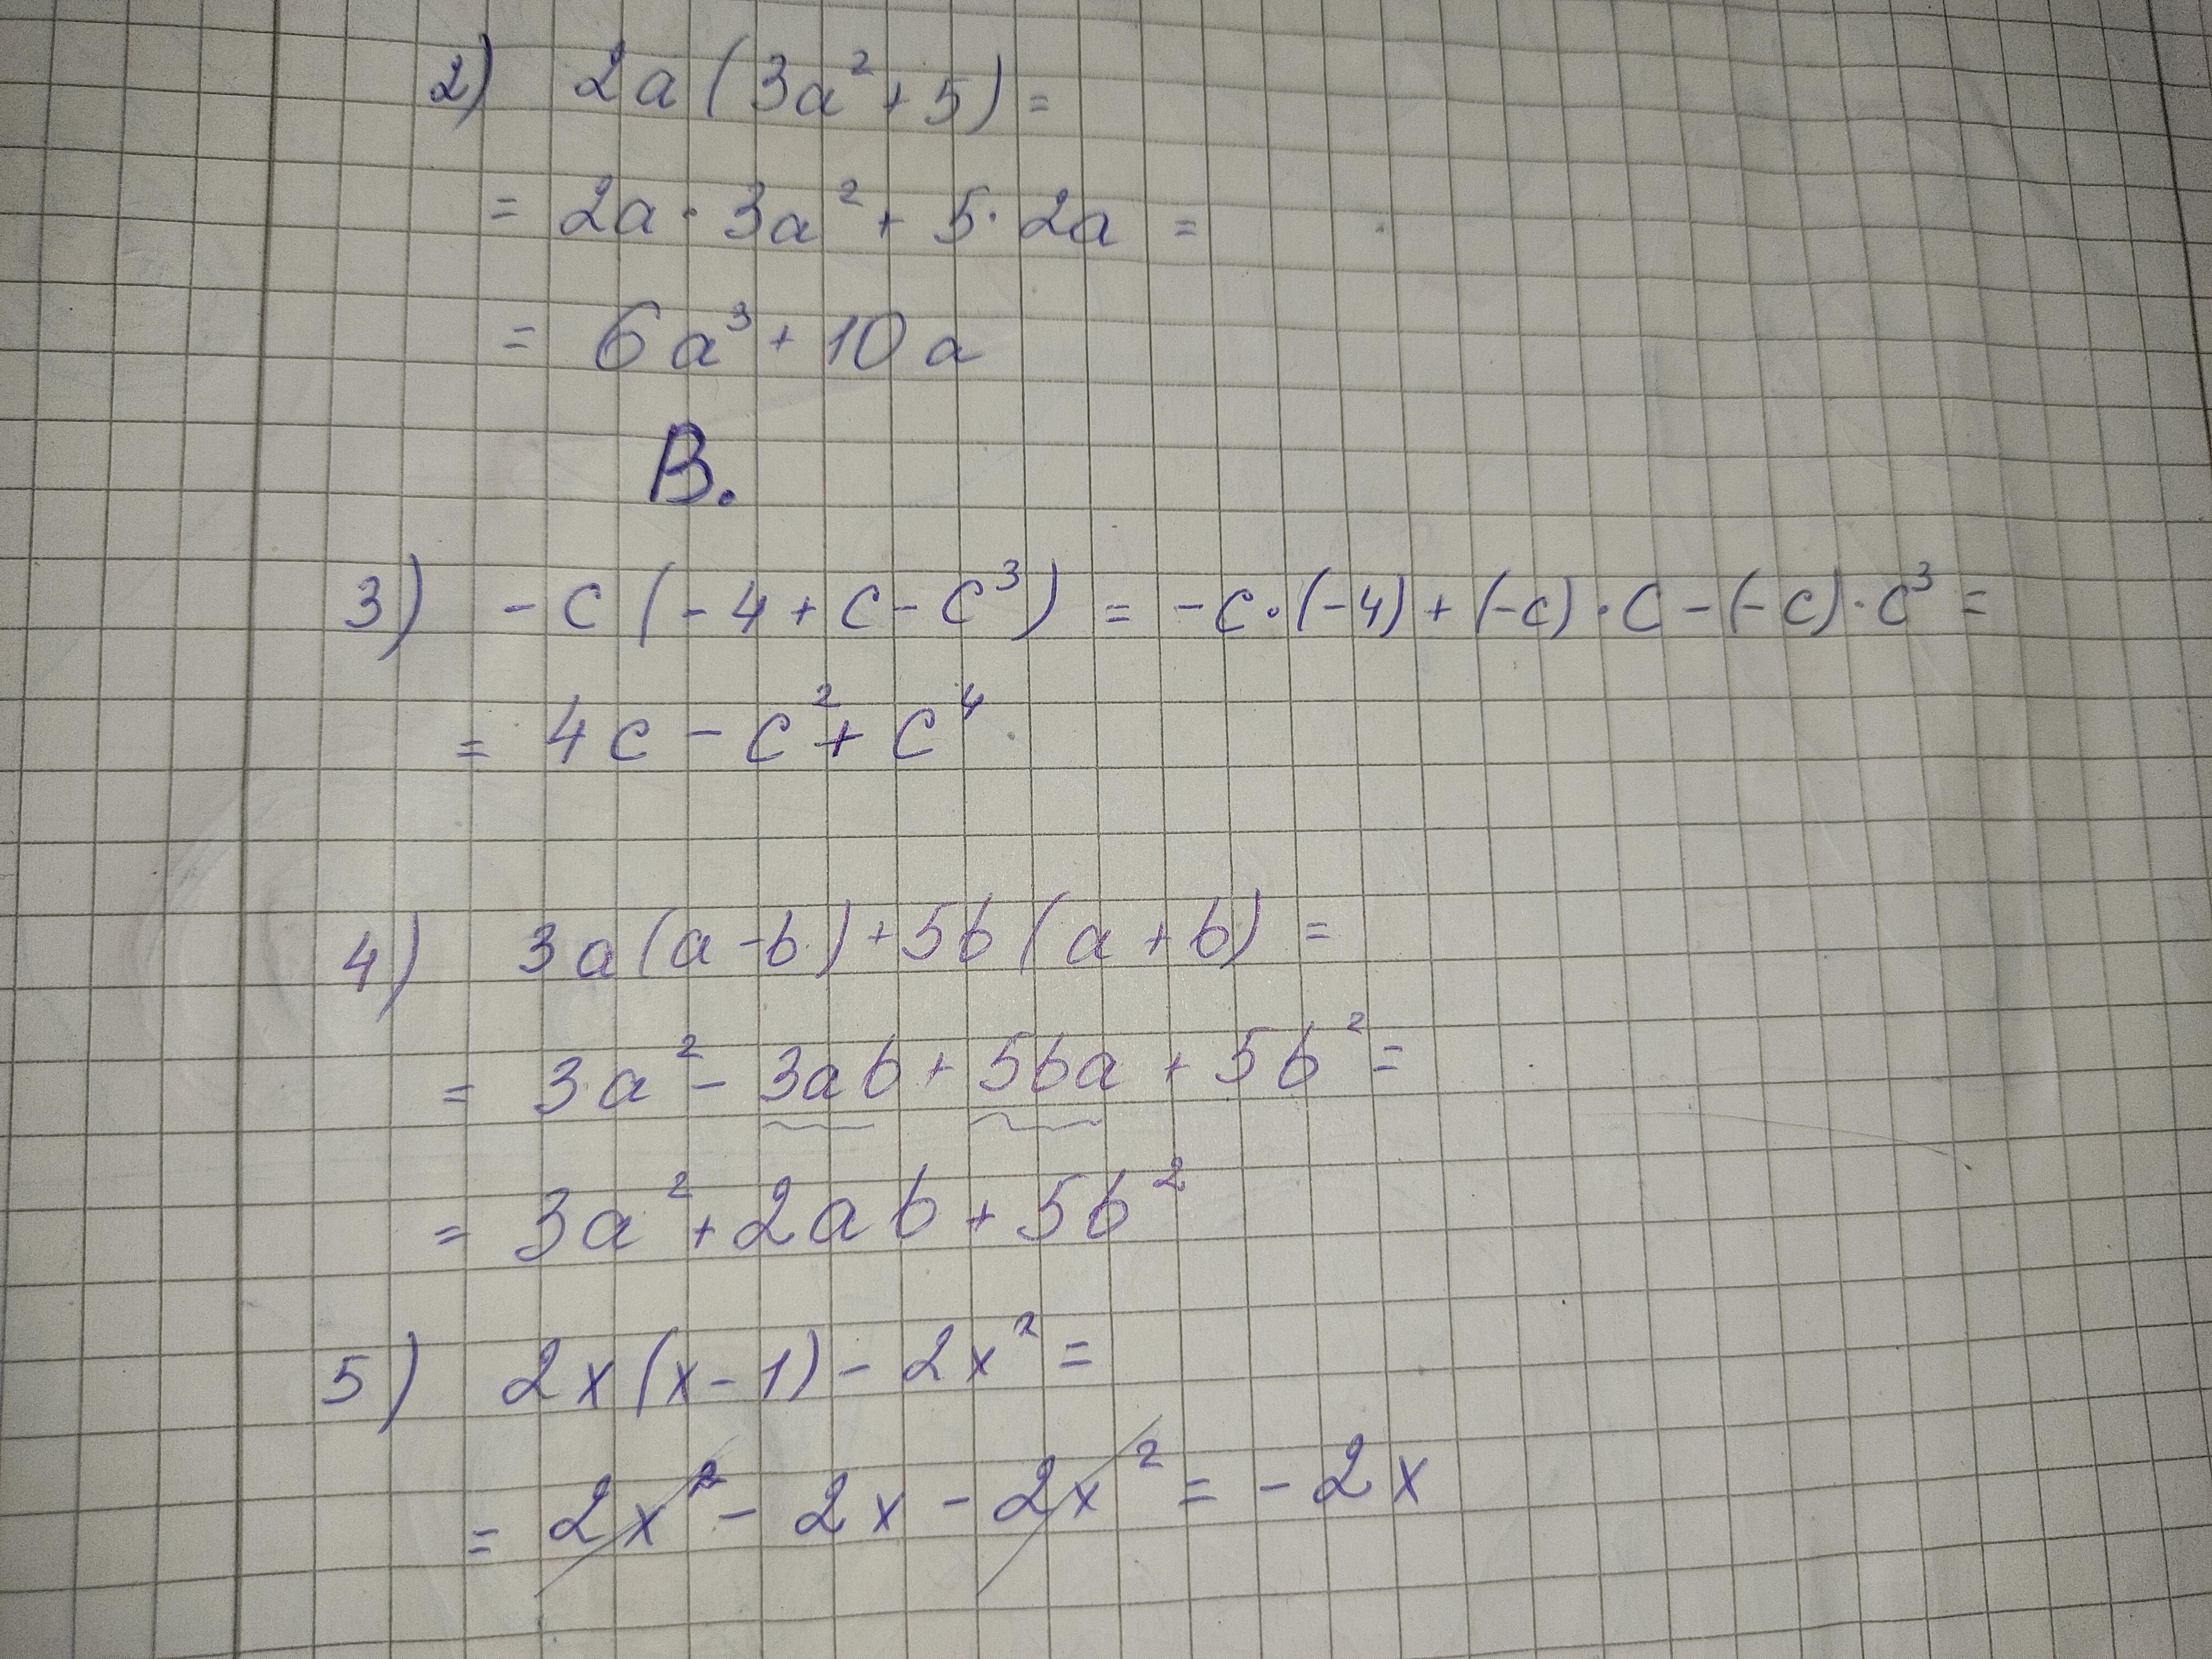 2) 2a(3a² + 5) =
= 2a · 3a² + 5 · 2a =
= 6a³ + 10a
В.
3) -c(-4 + c - c³) = -c · (-4) + (-c) · c - (-c) · c³ =
= 4c - c² + c⁴
4) 3a(a - b) + 5b(a + b) =
= 3a² - 3ab + 5ba + 5b² =
= 3a² + 2ab + 5b²
5) 2x(x - 1) - 2x² =
= 2x² - 2x - 2x² = -2x